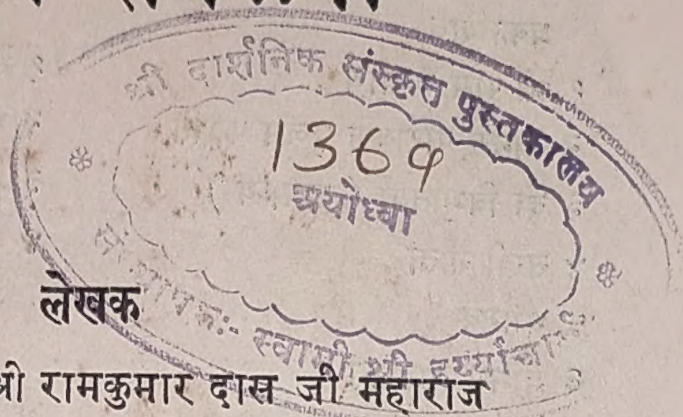 श्री दार्शनिक संस्कृत पुस्तकालय
1369
अयोध्या
लेखक
स्वामी श्री
श्री रामकुमार दास जी महाराज